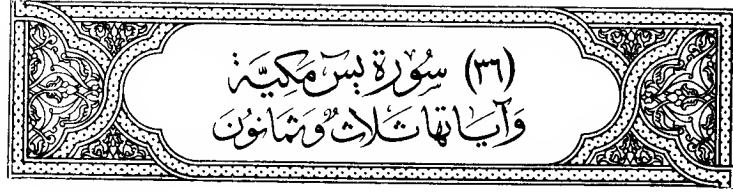 (٣٦) سُورَة يسٓ مَكيَّة
وَآيَاتهَا ثَلاثٌ وَثمَانُون